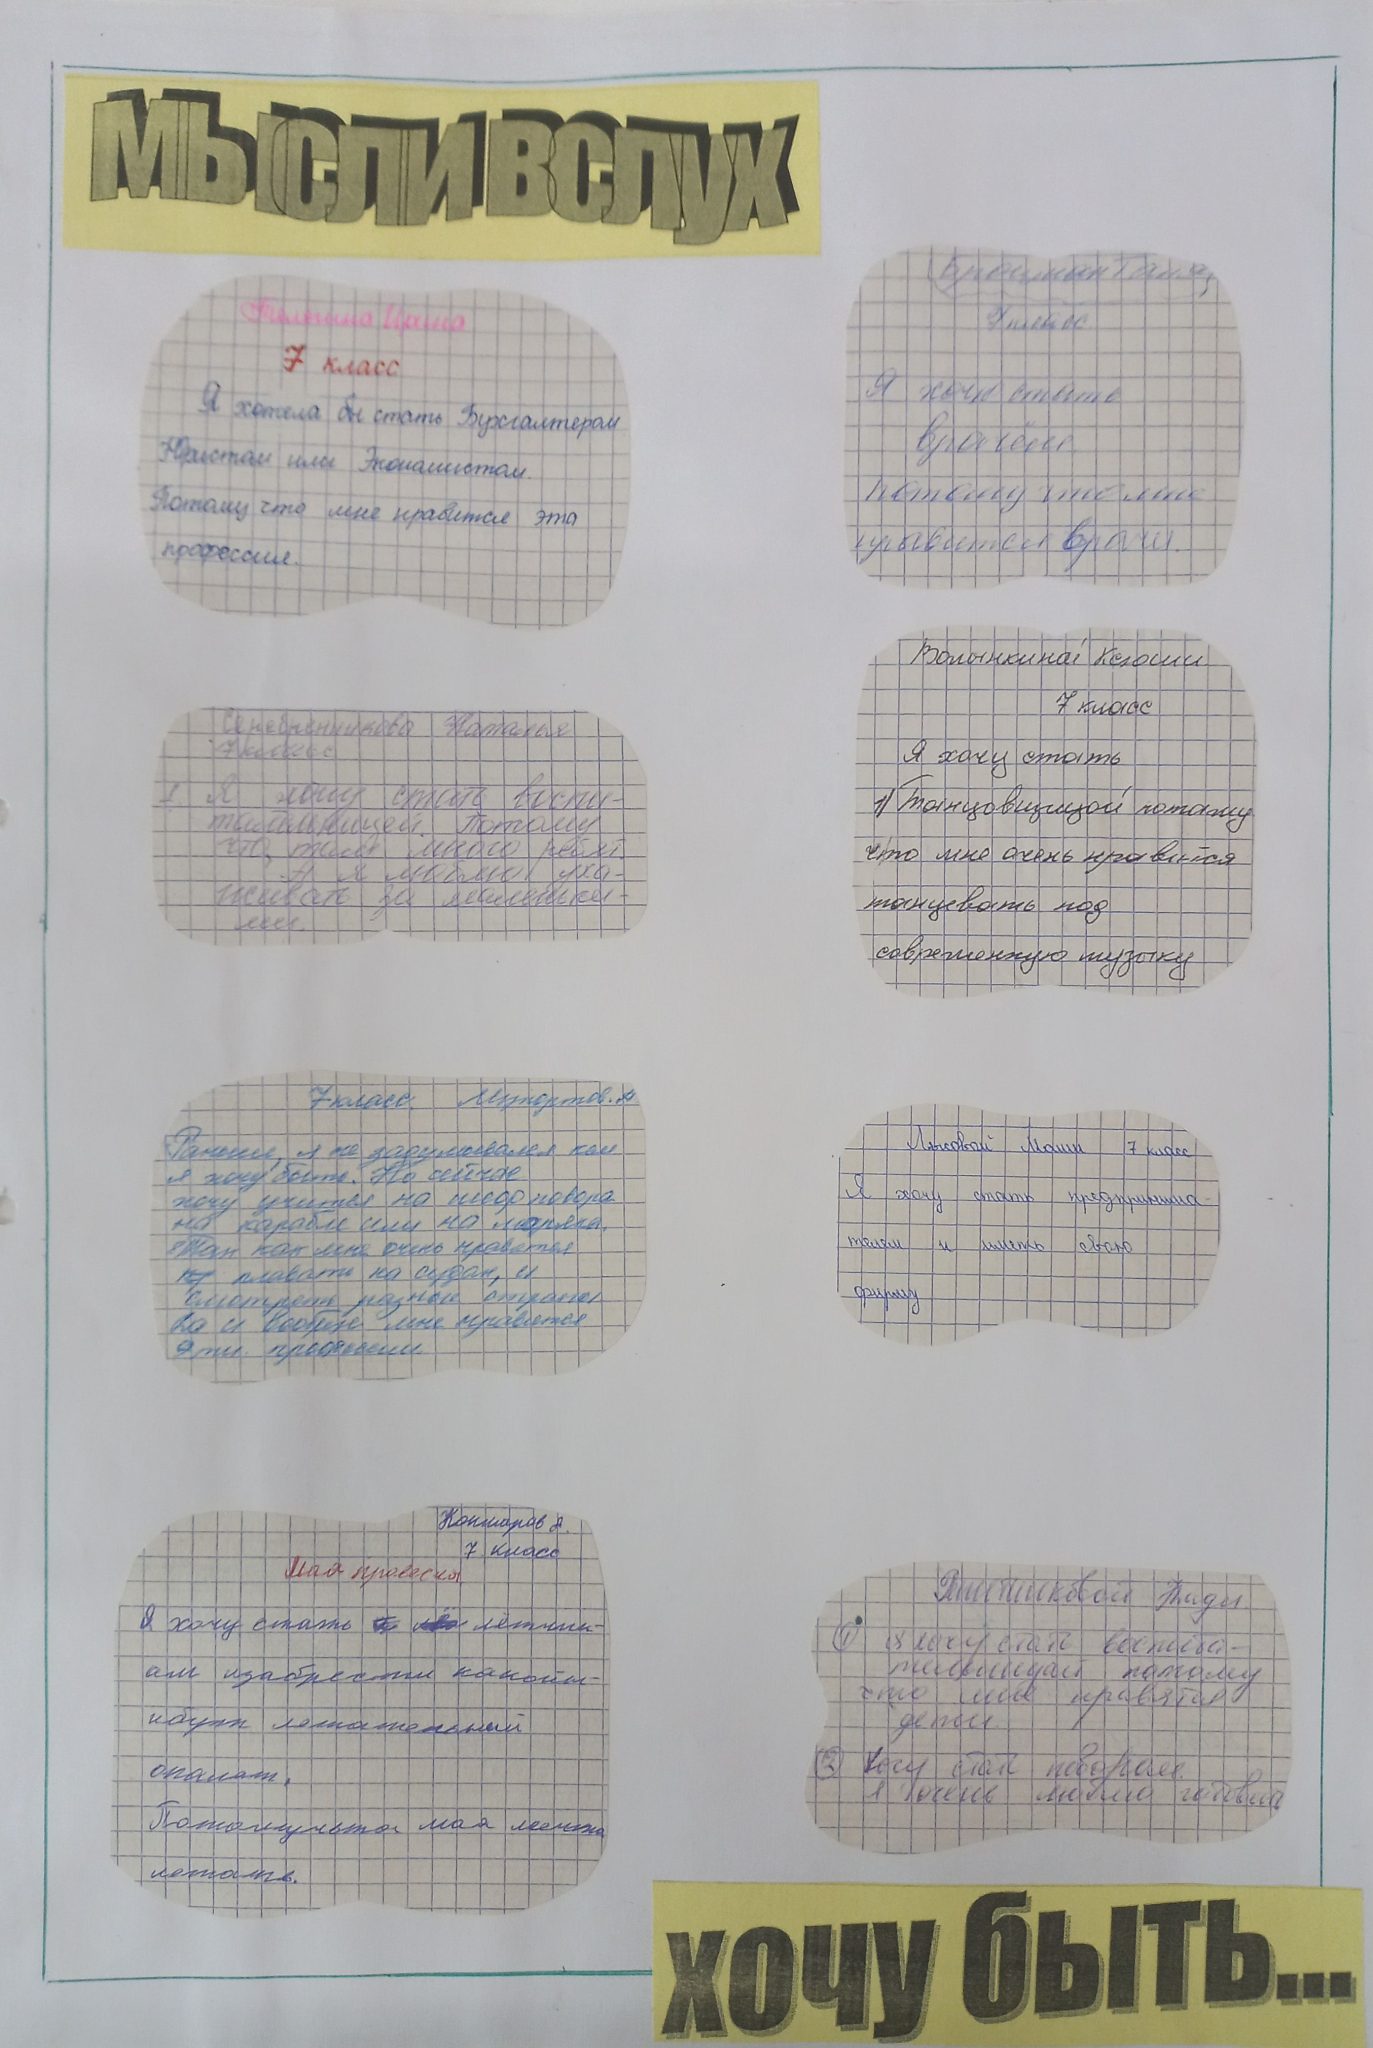 МЫСЛИ ВСЛУХ
Ирина
7 класс
Я хотела бы стать Бухгалтером
Юристом или Экономистом.
Потому что мне нравится эта
профессия.
7 класс
Я хочу стать
врачём
потому что мне
нравится врачи.
Серебренникова Наталья
7 класс
1 Я хочу стать воспи-
тательницей. Потому
что, там много ребят.
А я люблю уха-
живать за маленьки-
ми.
Волынкиной Ксюши
7 класс
Я хочу стать
1) Танцовщицой потому
что мне очень нравится
танцевать под
современную музыку
7 класс
Раньше, я не задумывался кем
я хочу быть. Но сейчас
хочу учится на шеф повора
на карабле или на моряка.
Так как мне очень нравется
плавать на судах, и
смотреть разные страны
Да и вообще мне нравется
эти професии
Лысовой Маши 7 класс
Я хочу стать предпринима-
телем и иметь свою
фирму
7 класс
Моя провесия
Я хочу стать лётчик-
ам изабрести какой
нибудь летательный
опалат.
Патамучьта моя мечта
летать.
1 Я хочу стать воспита-
тельницай потому
что мне нравятся
дети.
2 Хочу стать поваром.
Я очень люблю готовить
ХОЧУ БЫТЬ...